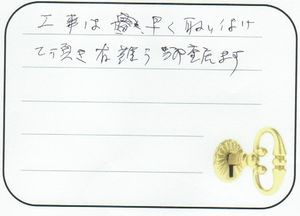 工事は 早く取り付け
て頂き有難うございます